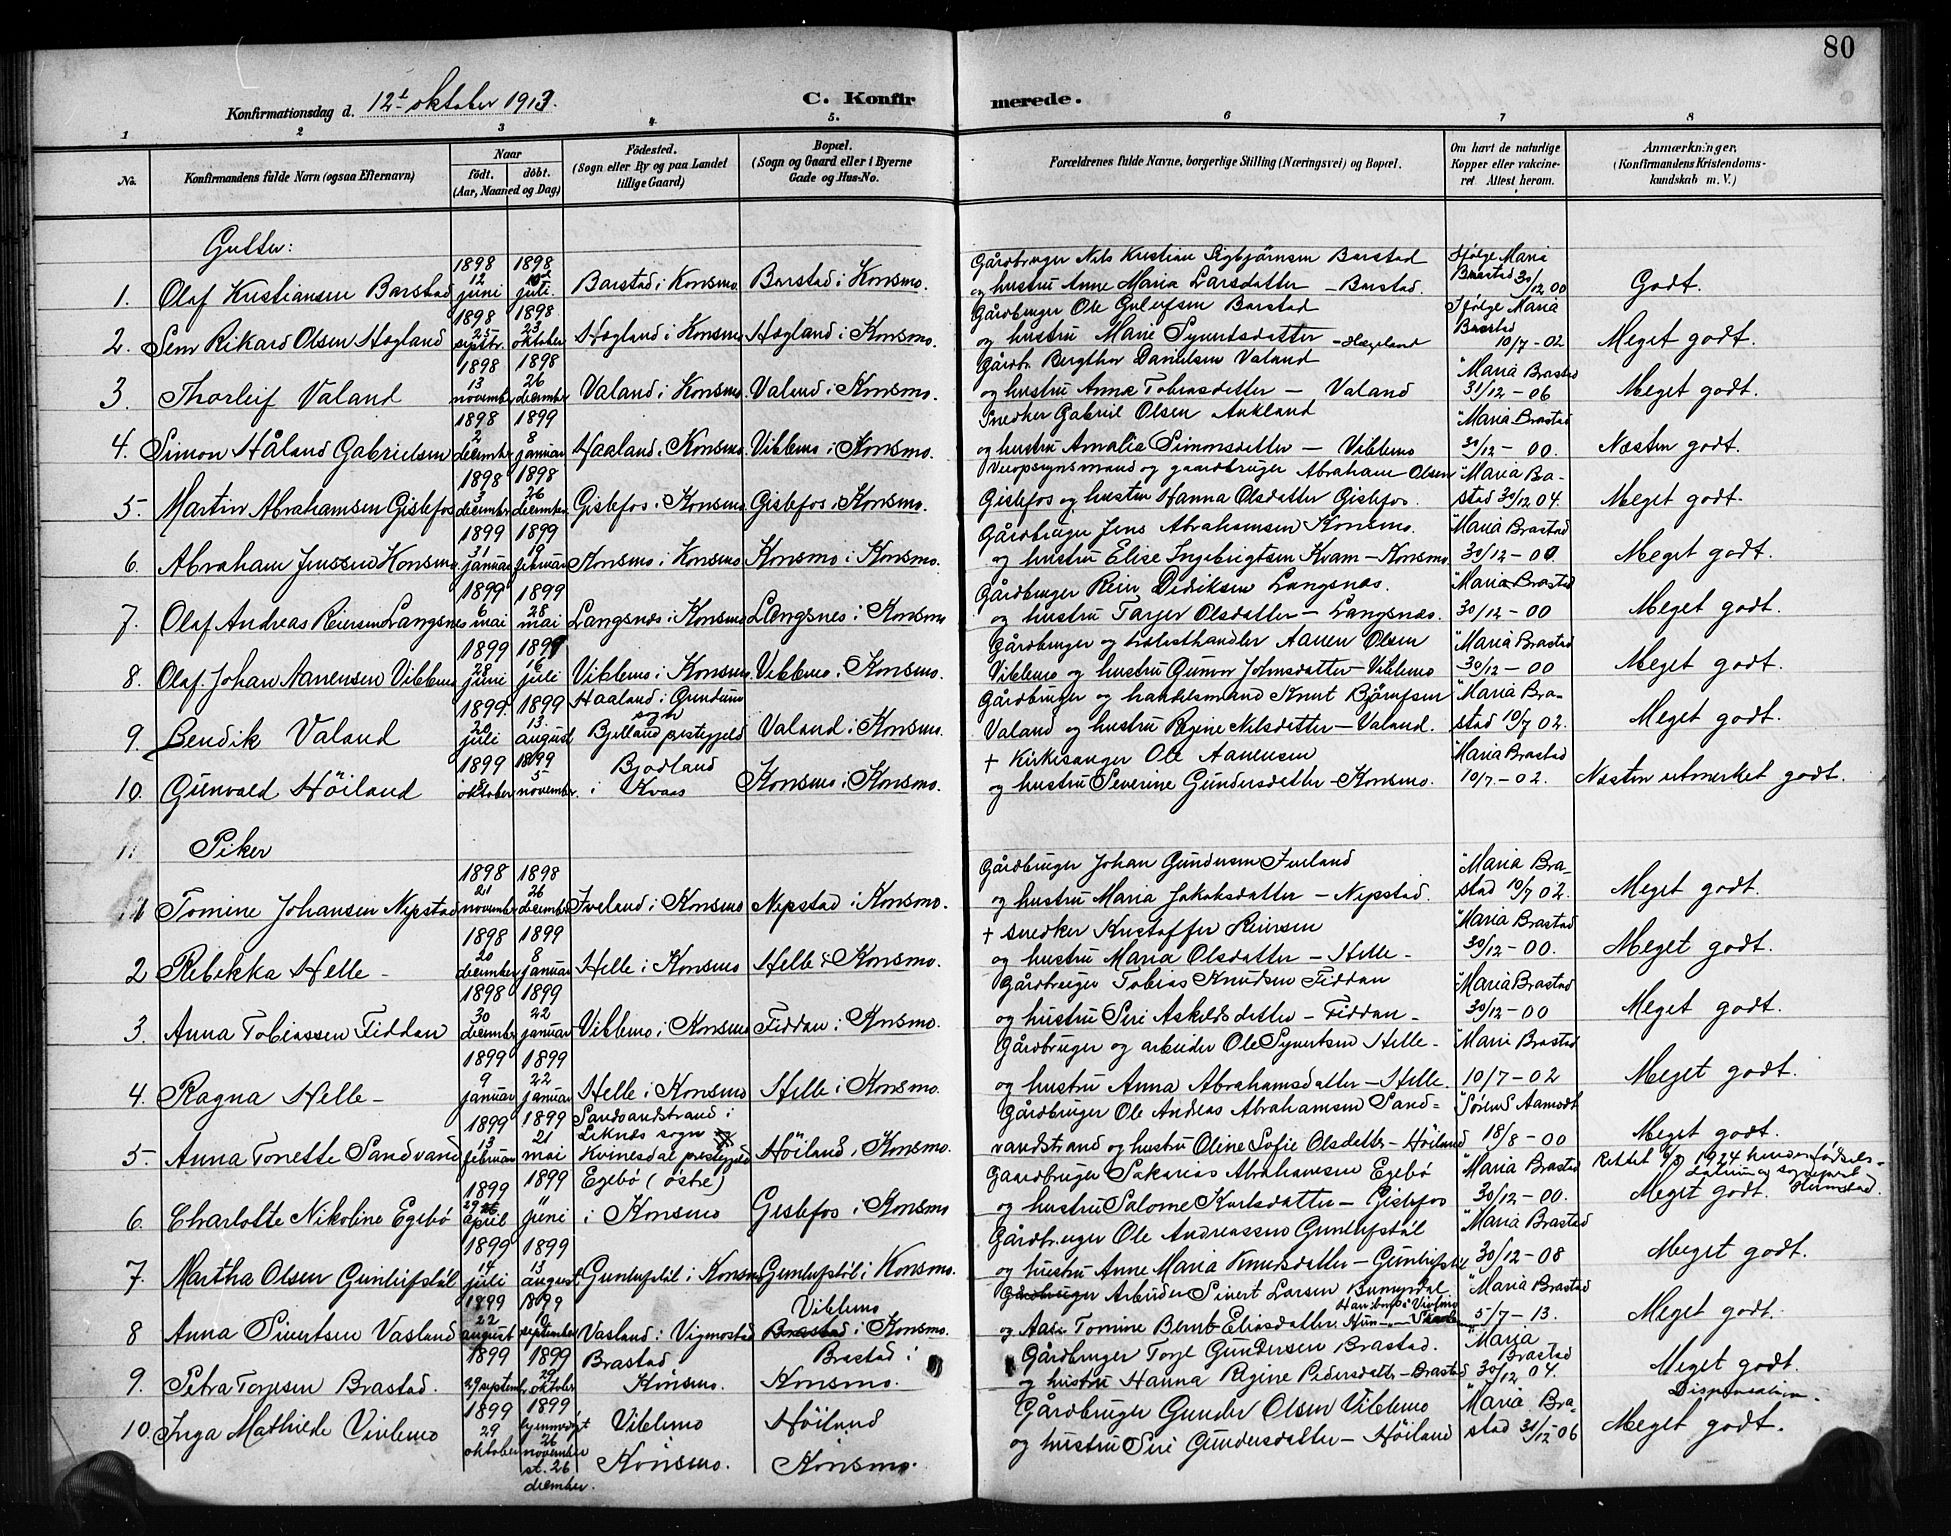 80
Konfirmationsdag d. 12te oktober 1913.
C. Konfirmerede.
1 2 3 4. 5. 6 7 8
No.
Konfirmandens fulde Navn (ogsaa Efternavn)
Naar
født. døbt.
(Aar, Maaned og Dag)
Fødested.
(Sogn eller By og paa Landet
tillige Gaard)
Bopæl.
(Sogn og Gaard eller i Byerne
Gade og Hus-No.
Forældrenes fulde Navne, borgerlige Stilling (Næringsvei) og Bopæl.
Om havt de naturlige
Kopper eller vakcine-
ret Attest herom.
Anmærkninger.
(Konfirmandens Kristendoms-
kundskab m. V.)
Gutter:
1. Olaf Kristiansen Barstad 1898 12 juni 1898 juli. Barstad i Konsmo Barstad i Konsmo.
Gårdbruger Nils Kristian Sigbjørnsen Barstad
og hustru Anne Maria Larsdatter – Barstad.
Ifølge Maria Brastad 30/12 00 Godt.
2. Rikard Olsen Høgland 1898 25 septbr. 1898 23 oktober Høgland i Konsmo Høgland i Konsmo.
Gårdbruger Ole Barstad
og hustru Marie Syvertsdatter – Høgeland
Ifølge Maria Brastad 10/7 – 02 Meget godt.
3. Thorleif Valand 1898 13 november 1898 26 december Valand i Konsmo. Valand i Konsmo.
Gårdb. Bergthor Danielsen Valand
og hustru Anne Tobiasdatter – Valand
" Maria Brastad 31/12 – 06 Meget godt.
4. Simon Håland Gabrielsen 1898 2 december 1899 8 januar Haaland i Konsmo Viblemo i Konsmo.
Snedker Gabriel Olsen Aukland
og hustru Amalia Simonsdatter – Viblemo
" Maria Brastad 30/12 – 00. Næsten godt.
5. Martin Abrahamsen Gislefos 1898 3 december 1898 26 december Gislefos i Konsmo Gislefos i Konsmo.
Veiopsynsmand og gaardbruger Abraham Olsen
Gislefos og hustru Hanna Olsdatter Gislefos.
" Maria Brastad 30/12 04. Meget godt.
6. Abraham Jenssen Konsmo 1899 31 januar 1899 19 februar Konsmo i Konsmo Konsmo i Konsmo.
Gårdbruger Jens Abrahamsen Konsmo.
og hustru Elise Ingebrigtsen Kvam – Konsmo
" Maria Brastad 30/12 – 00 Meget godt.
7. Olaf Andreas Reiersen Langsnes 1899 6 mai 1899 28 mai Langsnes i Konsmo Langsnes i Konsmo
Gårdbruger Reier Didriksen Langsnæs.
og hustru Tarjer Olsdatter – Langsnæs.
" Maria Brastad 30/12 – 00 Meget godt.
8. Olaf Johan Aanensen Viblemo 1899 28 juni 1899 16 juli Viblemo i Konsmo Viblemo i Konsmo.
Gårdbruger og Aanen Olsen
Viblemo og hustru Gunvor Johnsdatter – Viblemo
" Maria Brastad 30/12 – 00 Meget godt.
9. Bendik Valand 1899. 20 juli 1899 13. august Haaland i Grundum sogn Bjelland prestegjeld Valand i Konsmo.
Gårdbruger og handelsmand Knut
Valand og hustru Regine Nilsdatter – Valand.
" Maria Brastad 10/7 02. Meget godt.
10. Gunvald Höiland 1899 8 oktober 1899 5 november. Bjodland i Kvaas Konsmo i Konsmo.
† Kirkesanger Ole Aanensen
og hustru Severine Gundersdatter – Konsmo.
" Maria Brastad 10/7 – 02. Næsten utmerket godt.
11 Piker
1 Tomine Johansen Nepstad 1898 21 november 1898 26 december Iveland i Konsmo Nepstad i Konsmo.
Gårdbruger Johan Gundersen Iveland
og hustru Maria Jakobsdatter – Nepstad.
" Maria Brastad 10/7 02. Meget godt.
2 Rebekka Helle – 1898 20 december 1899 8 januar Helle i Konsmo Helle i Konsmo.
† snedker Kristoffer Reiersen
og hustru Maria Olsdatter – Helle –
" Maria Brastad 30/12 – 00. Meget godt.
3. Anna Tobiassen Fiddan 1898 30 december 1899 22 januar Viblemo i Konsmo Fiddan i Konsmo.
Gårdbruger Tobias Knudsen Fiddan
og hustru Siri Askeldsdatter – Fiddan –
" Maria Brastad 30/12 – 00 Meget godt.
4. Ragna Helle – 1899 9 januar 1899 22 januar Helle i Konsmo Helle i Konsmo.
Gårdbruger og arbeider Ole Syvertsen Helle –
og hustru Anna Abrahamsdatter – Helle.
" Maria Brastad 10/7 – 02 Meget godt.
5. Anna Tonette Sandvand 1899 13 februar 1899 21 mai Sandvandstrand i Liknes sogn Kvinesdal prestegjeld Höiland i Konsmo.
Gårdbruger Ole Andreas Abrahamsen Sand=
vandstrand og hustru Oline Sofie Olsdatter – Höiland
" Sørens Aamodt 18/8 – 00 Meget godt.
6. Charlotte Nikoline Egebö 1899 29 april 1899 11 juni Egebö (östre) i Konsmo Gislefos i Konsmo
Gaardbruger Sakarias Abrahamsen Egebö
og hustru Salome Karlsdatter – Gislefos
" Maria Brastad 30/12 – 00. Meget godt.
Rettet 1924 hendes fødsels-
datum
7. Martha Olsen Gunleifstöl 1899 14 juli 1899 13 august Gunleifstöl i Konsmo Gunleifstöl i Konsmo.
Gårdbruger Ole Andreassen Gunleifstöl
og hustru Anne Maria Knudsdatter – Gunleifstöl
" Maria Brastad 30/12 – 08 Meget godt.
8 Anna Sivertsen Vasland 1899 22 august 1899 10 september Vasland i Vigmostad Viblemo Brastad i Konsmo.
Gårdbruger Arbeider Sivert Larsen
og Aase Tomine Bernt Eliasdatter
" Maria Brastad 5/7 – 13. Meget godt.
9. Petra Torjesen Brastad. 1899 29 septembr 1899 29 oktober Brastad Konsmo. Brastad i Konsmo.
Gårdbruger Torje Gundersen Brastad.
og hustru Hanna Regine Pedersdatter – Brastad
" Maria Brastad 30/12 04. Meget godt.
Dispensation.
10. Inga Mathilde Viblemo 1899 29 oktober 1899 hjemmedøpt 26 november st. 26 december. Viblemo Konsmo. Höiland Konsmo.
Gårdbruger Gunder Olsen Viblemo
og hustru Siri Gundersdatter – Höiland
" Maria Brastad 31/12 06 Meget godt.